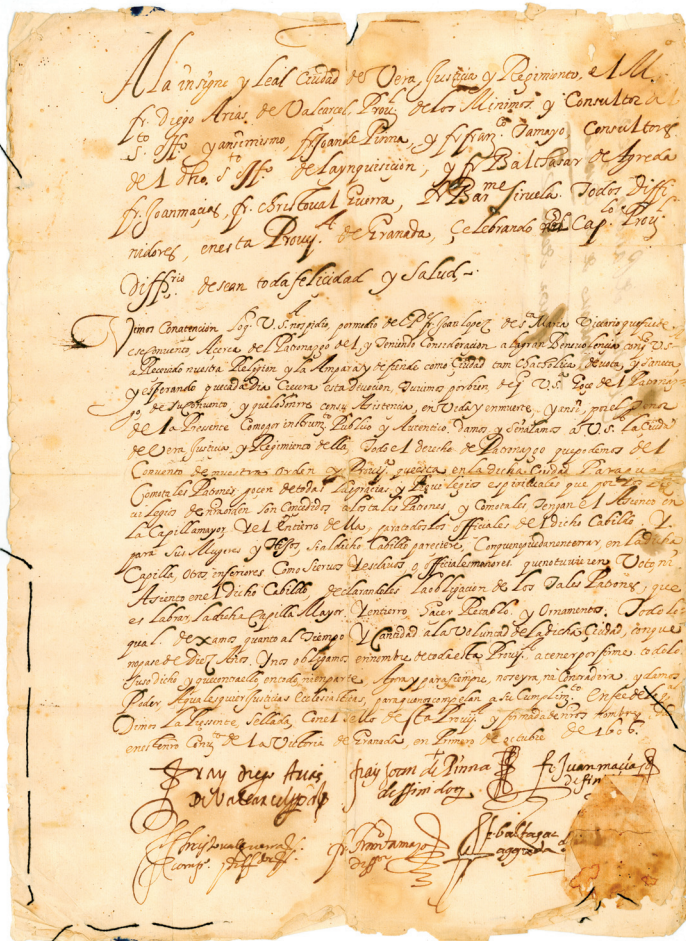 A La insigne y Leal Ciudad de Vera, Justicia y Regimiento, el M.
fr. Diego Arias de Valcarcel, Prou.l de los Minimos y Consultor del
s.to off.o y ansimismo, fr Joan de Pinna, y fr fran.co Tamayo, Consultores
del dho, s.to off.o de la ynquisicion, y fr Balthasar de Agreda
fr. Joan maçias, fr. christoual Guerra, fr Bar.me Siruela. Todos Diffi
nidores, en esta Prou.A de Granada, Celebrando Cap.lo Proui
Diff.rio desean toda felicidad y Salud.
Vimos Con atencion Lo q. V.S. nos pidio, por medio del P.e fr. Joan Lopez de s.ta Maria Vicario que fue de
ese Conuento, Acerca del Patronazgo del, y Teniendo Consideracion a la gran Beneuolencia con q. V.S.
a Receuido nuestra Religion y la Ampara y defiende como Ciudad tan Chatholica deuota, y sancta
y esperando que cada dia Crecera esta Deuocion, Tuuimos por bien de q V.S. Goçe del Patronaz
go, de su Conuento, y que lo honrre con su Asistencia, en Vida y en muerte. y ansi, por el Tenor
de la Presente Como por instrum.to Publico y Autentico, damos y Señalamos a V.S. la Ciudad
de Vera Justicia, y Regimiento della, Todo el derecho de Patronazgo que podemos del
Conuento de nuestra orden y Prou.A que esta en la Dicha Ciudad Para que
Como tales Patrones, gocen de todas las gracias y Priuilegios espirituales que por
uilegios de son Concedidos a los tales Patrones, y Como tales, Tengan el Asiento en
La Capilla mayor, Y el Entierro della, para todos los officiales del dicho Cabildo, Y
para Sus Mugeres y Hijos, si al dicho Cabildo pareciere, Con que no puedan enterrar, en la dicha
Capilla, otros inferiores Como Sieruos y esclauos, o officiales menores que no tuuieren Voto ni
Asiento en el Dicho Cabildo declarandoles la obligacion de los Tales Patrones, que
es Labrar, la dicha Capilla Mayor, Y entierro, hacer Retablo, y Ornamentos. Todo lo
qual dexamos quanto al Tiempo Y Cantidad a la Voluntad de la dicha Ciudad, con que
no pase de Diez Años. Y nos obligamos en nombre de toda esta Prou.A a tener por firme todo lo
suso dicho y que contra ello, en todo ni en parte, Agora y para siempre, no se yra, ni Contradira, y damos
Poder, A qualesquier Justicias Ecclesiasticas, para que nos compelan a su Cumplim.to En fee de lo qual
Dimos La Pressente, Sellada, Con el Sello desta Prou.A y firmada de nros nombres.
en nro Conu.to de la Victoria de Granada, en Primero de octubre de 1606.
fray Diego Arias
de Valcarcel
fray Joan de Pinna
diffinidor
fr. Juan macias
difin
fr christoual guerra
Diffi.or
fr fran.co tamayo
diffi.or
fr baltasar de
agreda